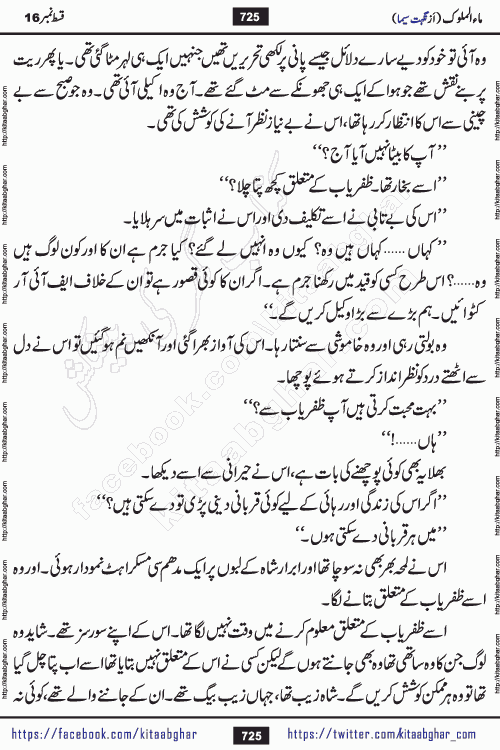 ماء الملوک (از نگہت سیما)
725
قسط نمبر 16
وہ آئی تو خود کو دیے سارے دلائل جیسے پانی پر لکھی تحریریں تھیں جنہیں ایک ہی لہر مٹا گئی تھی۔ یا پھر ریت
پر بنے نقش تھے جو ہوا کے ایک ہی جھونکے سے مٹ گئے تھے۔ آج وہ اکیلی آئی تھی۔ وہ جو صبح سے بے
چینی سے اس کا انتظار کر رہا تھا، اس نے بے نیاز نظر آنے کی کوشش کی تھی۔
’’آپ کا بیٹا نہیں آیا آج؟‘‘
’’اسے بخار تھا۔ ظفریاب کے متعلق کچھ پتا چلا؟‘‘
’’اس کی بے تابی نے اسے تکلیف دی اور اس نے اثبات میں سر ہلایا۔
’’کہاں ...... کہاں ہیں وہ؟ کیوں وہ انہیں لے گئے؟ کیا جرم ہے ان کا اور کون لوگ ہیں
وہ......؟ اس طرح کسی کو قید میں رکھنا جرم ہے۔ اگر ان کا کوئی قصور ہے تو ان کے خلاف ایف آئی آر
کٹوائیں۔ ہم بڑے سے بڑا وکیل کریں گے۔‘‘
وہ بولتی رہی اور وہ خاموشی سے سنتا رہا۔ اس کی آواز بھرا گئی اور آنکھیں نم ہو گئیں تو اس نے دل
سے اٹھتے درد کو نظر انداز کرتے ہوئے پوچھا۔
’’بہت محبت کرتی ہیں آپ ظفریاب سے؟‘‘
’’ہاں ......!‘‘
بھلا یہ بھی کوئی پوچھنے کی بات ہے، اس نے حیرانی سے اسے دیکھا۔
’’اگر اس کی زندگی اور رہائی کے لیے کوئی قربانی دینی پڑی تو دے سکتی ہیں؟‘‘
’’میں ہر قربانی دے سکتی ہوں۔‘‘
اس نے لمحہ بھر بھی نہ سوچا تھا اور ابرار شاہ کے لبوں پر ایک مدھم سی مسکراہٹ نمودار ہوئی۔ اور وہ
اسے ظفریاب کے متعلق بتانے لگا۔
اسے ظفریاب کے متعلق معلوم کرنے میں وقت نہیں لگا تھا۔ اس کے اپنے سورسز تھے۔ شاید وہ
لوگ جن کا وہ ساتھی تھا وہ بھی جانتے ہوں گے لیکن کسی نے اس کے متعلق نہیں بتایا تھا اسے اب پتا چل گیا
تھا تو وہ ہر ممکن کوشش کریں گے۔ شاہ زیب تھا، جہاں زیب بیگ تھے۔ ان کے جاننے والے تھے، کوئی نہ
https://facebook.com/kitaabghar
725
https://twitter.com/kitaabghar_com
http://kitaabghar.com
kitaabghar.com